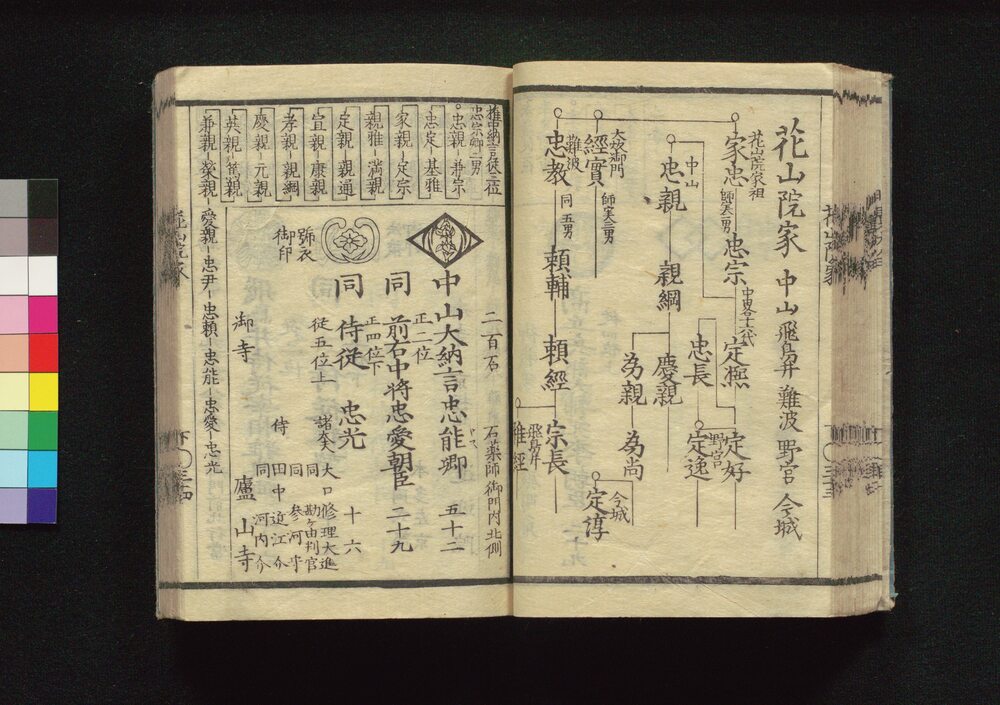 花山院家 中山 飛鳥井 難波 野宮 今城
花山院家祖
家忠
師実二男
忠宗
中畧十六代
定熈
定好
野宮
定逸
忠長
中山
忠親
親綱
慶親
為親
為尚
今城
定淳
大炊御門
經實
師実三男
難波
忠教
同五男
頼輔
頼経
宗長
飛鳥井
雅経
花山院家
下
三十三
権中納言従三位
忠宗卿二男
忠親 兼宗
忠定 基雅
家親 定宗
親雅 満親
定親 親通
宣親 康親
孝親 親綱
慶親 元親
英親 篤親
兼親 榮親 愛親 忠尹 忠頼 忠能 忠愛 忠光
二百石 石薬師御門内北側
中山大納言忠能卿 五十二
正二位
同 前右中将忠愛朝臣 二十九
正四位下
同 侍従 忠光 十六
従五位上
號衣
御印
諸大夫 大口修理大進
同 勘ケ由判官
同 参河守
侍 田中近江介
同 河内介
御寺 廬山寺
下
三十四